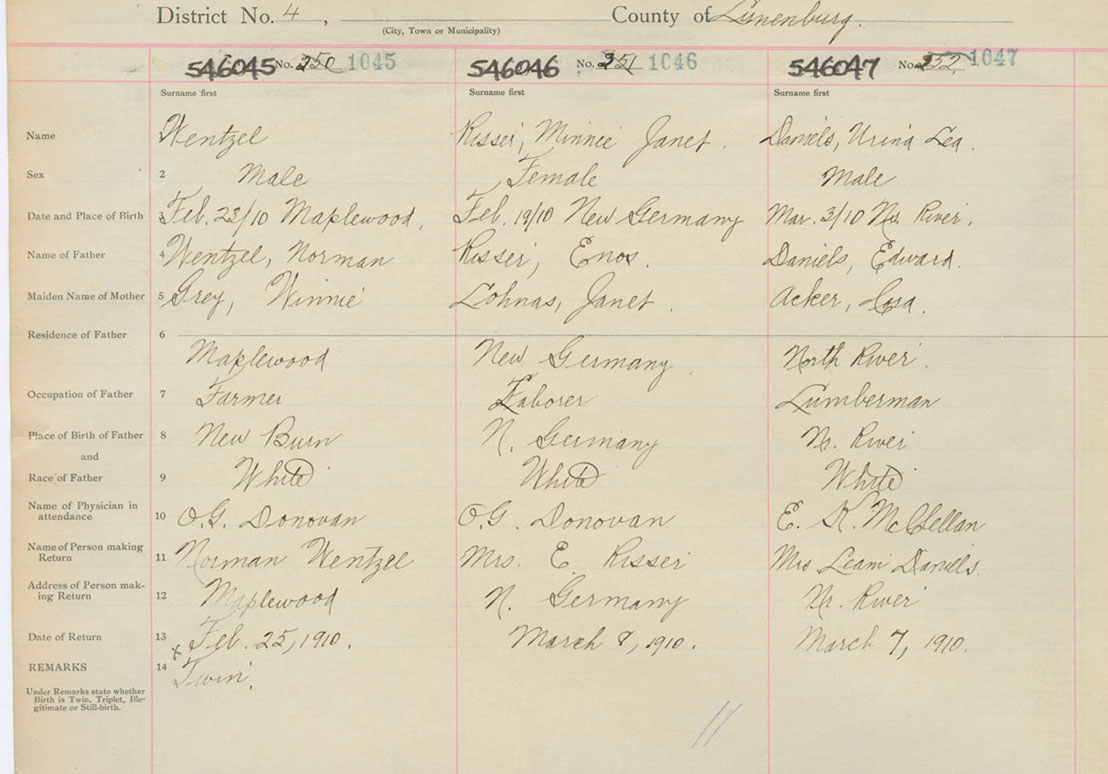 District No. 4, County of Lunenburg.
(City, Town or Municipality)
546045 No. 250 1045 546046 No. 351 1046 546047 No. 252 1047
Surname first Surname first Surname first
Name Wentzel Risser, Minnie Janet. Daniels, Urina Lea.
Sex 2 Male Female Male
Date and Place of Birth 3 Feb. 23/10 Maplewood. Feb. 19/10 New Germany Mar. 3/10 No. River.
Name of Father 4 Wentzel, Norman Risser, Enos. Daniels, Edward.
Maiden Name of Mother 5 Grey, Winnie Lohnas, Janet. Acker,
Residence of Father 6
Maplewood New Germany North River.
Occupation of Father 7 Farmer Laborer Lumberman
Place of Birth of Father 8 New Burn N. Germany No. River
and
Race of Father 9 White White White
Name of Physician in
attendance 10 O.G. Donovan O.G. Donovan E. K. McClellan
Name of Person making
Return 11 Norman Wentzel Mrs. E. Risser Mrs Leani Daniels.
Address of Person mak-
ing Return 12 Maplewood N. Germany No. River
Date of Return 13 x Feb. 25, 1910. March 8, 1910. March 7, 1910.
REMARKS 14 Twin.
Under Remarks state whether
Birth is Twin, Triplet, Ille-
gitimate or Still-birth.